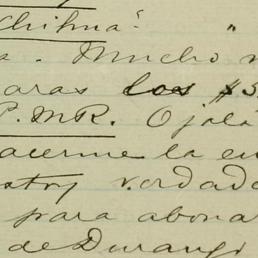 Chihua. "
a. Mucho
aras los $3
P.MR. Ojalá
acerme la en
stoy verdade
para abona
de Durang